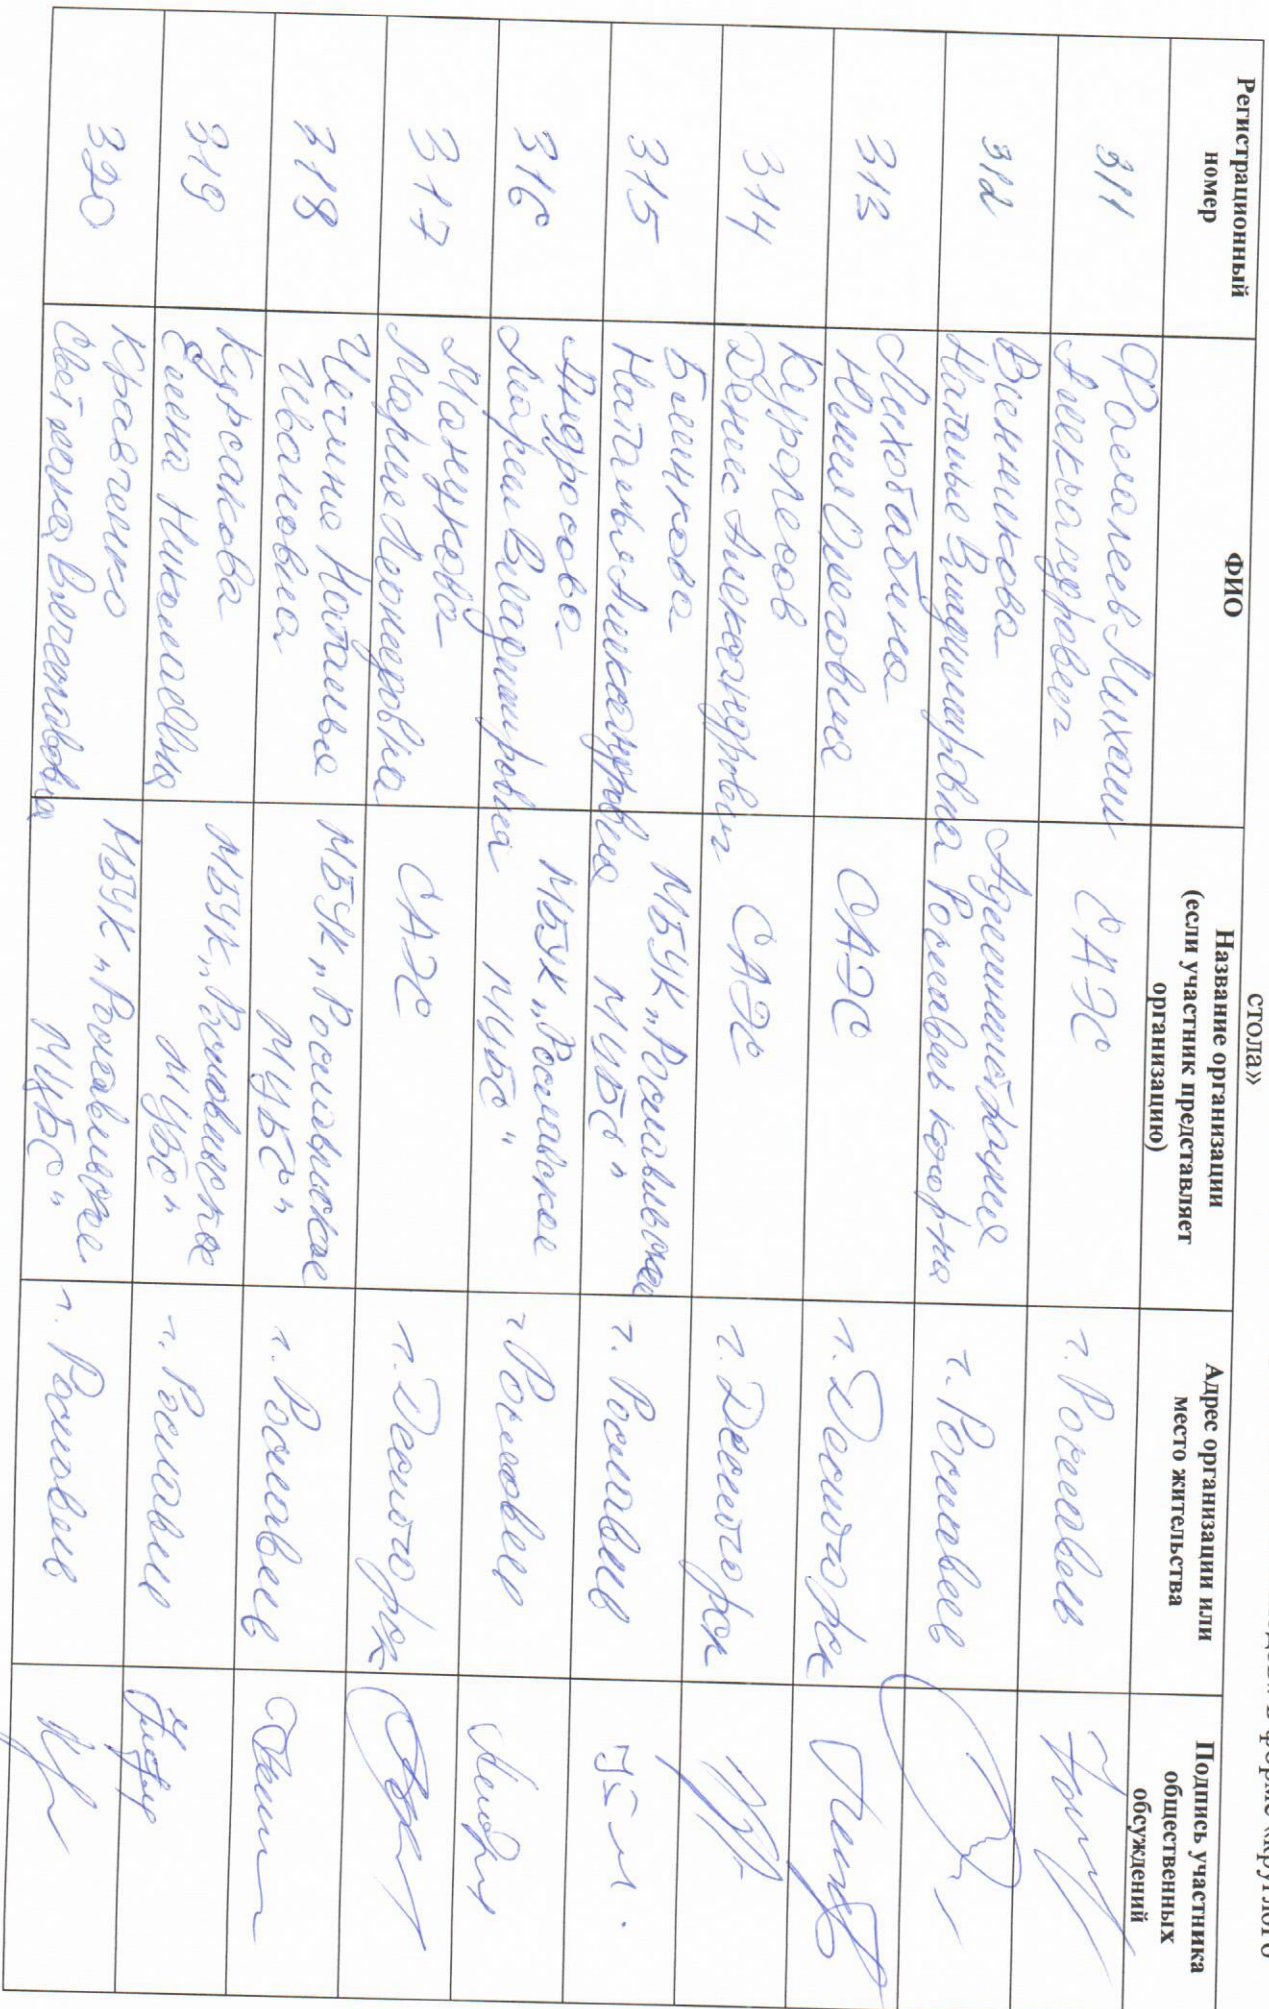 в форме «круглого
стола»
Регистрационный
номер
ФИО
Название организации
(если участник представляет
организацию)
Адрес организации или
место жительства
Подпись участника
общественных
обсуждений
311
Михаил
Александрович
САЭС
г. Рославль
312
Винникова
Наталья Владимировна
Администрация
Рославльского р-на
г. Рославль
313
Лихобабина
Юлия Олеговна
САЭС
г. Десногорск
314
Куролесов
Денис Александрович
САЭС
г. Десногорск
315
Блинкова
Наталья Александровна
МБУК „Рославльское
МЦБС"
г. Рославль
316
Андросова
Мария Владимировна
МБУК „Рославское
МЦБС"
г. Рославль
317
Манукова
Мария Леонидовна
САЭС
г. Десногорск
318
Наталья
Ивановна
МБУК „Рославльское
МЦБС"
г. Рославль
319
Курсакова
Елена Николаевна
МБУК „Рославльское
МЦБС"
г. Рославль
320
Кравченко
Светлана Вячеславовна
МБУК „Рославльское
МЦБС"
г. Рославль